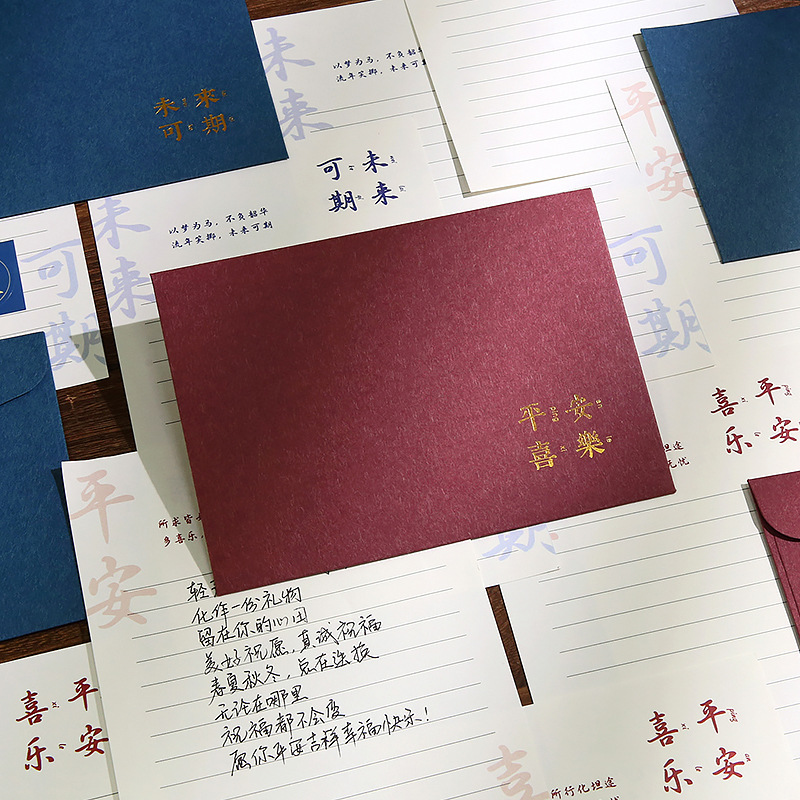 未來
可期
未来
以梦为马，不负韶
流年笑掷，未来可期
平安
未来
可期
以梦为马，不负韶华
流年笑掷，未来可期
未来
可期
可期
平安
喜樂
平安
喜乐
坦途
无忧
平安
所求皆
多喜乐，
轻
化作一份礼物
留在你的心田
美好祝愿，真诚祝福
春夏秋冬，总在迭换
无论在哪里
祝福都不会变
愿你平安吉祥幸福快乐！
期
平安
喜乐
平安
喜乐
喜
所行化坦途